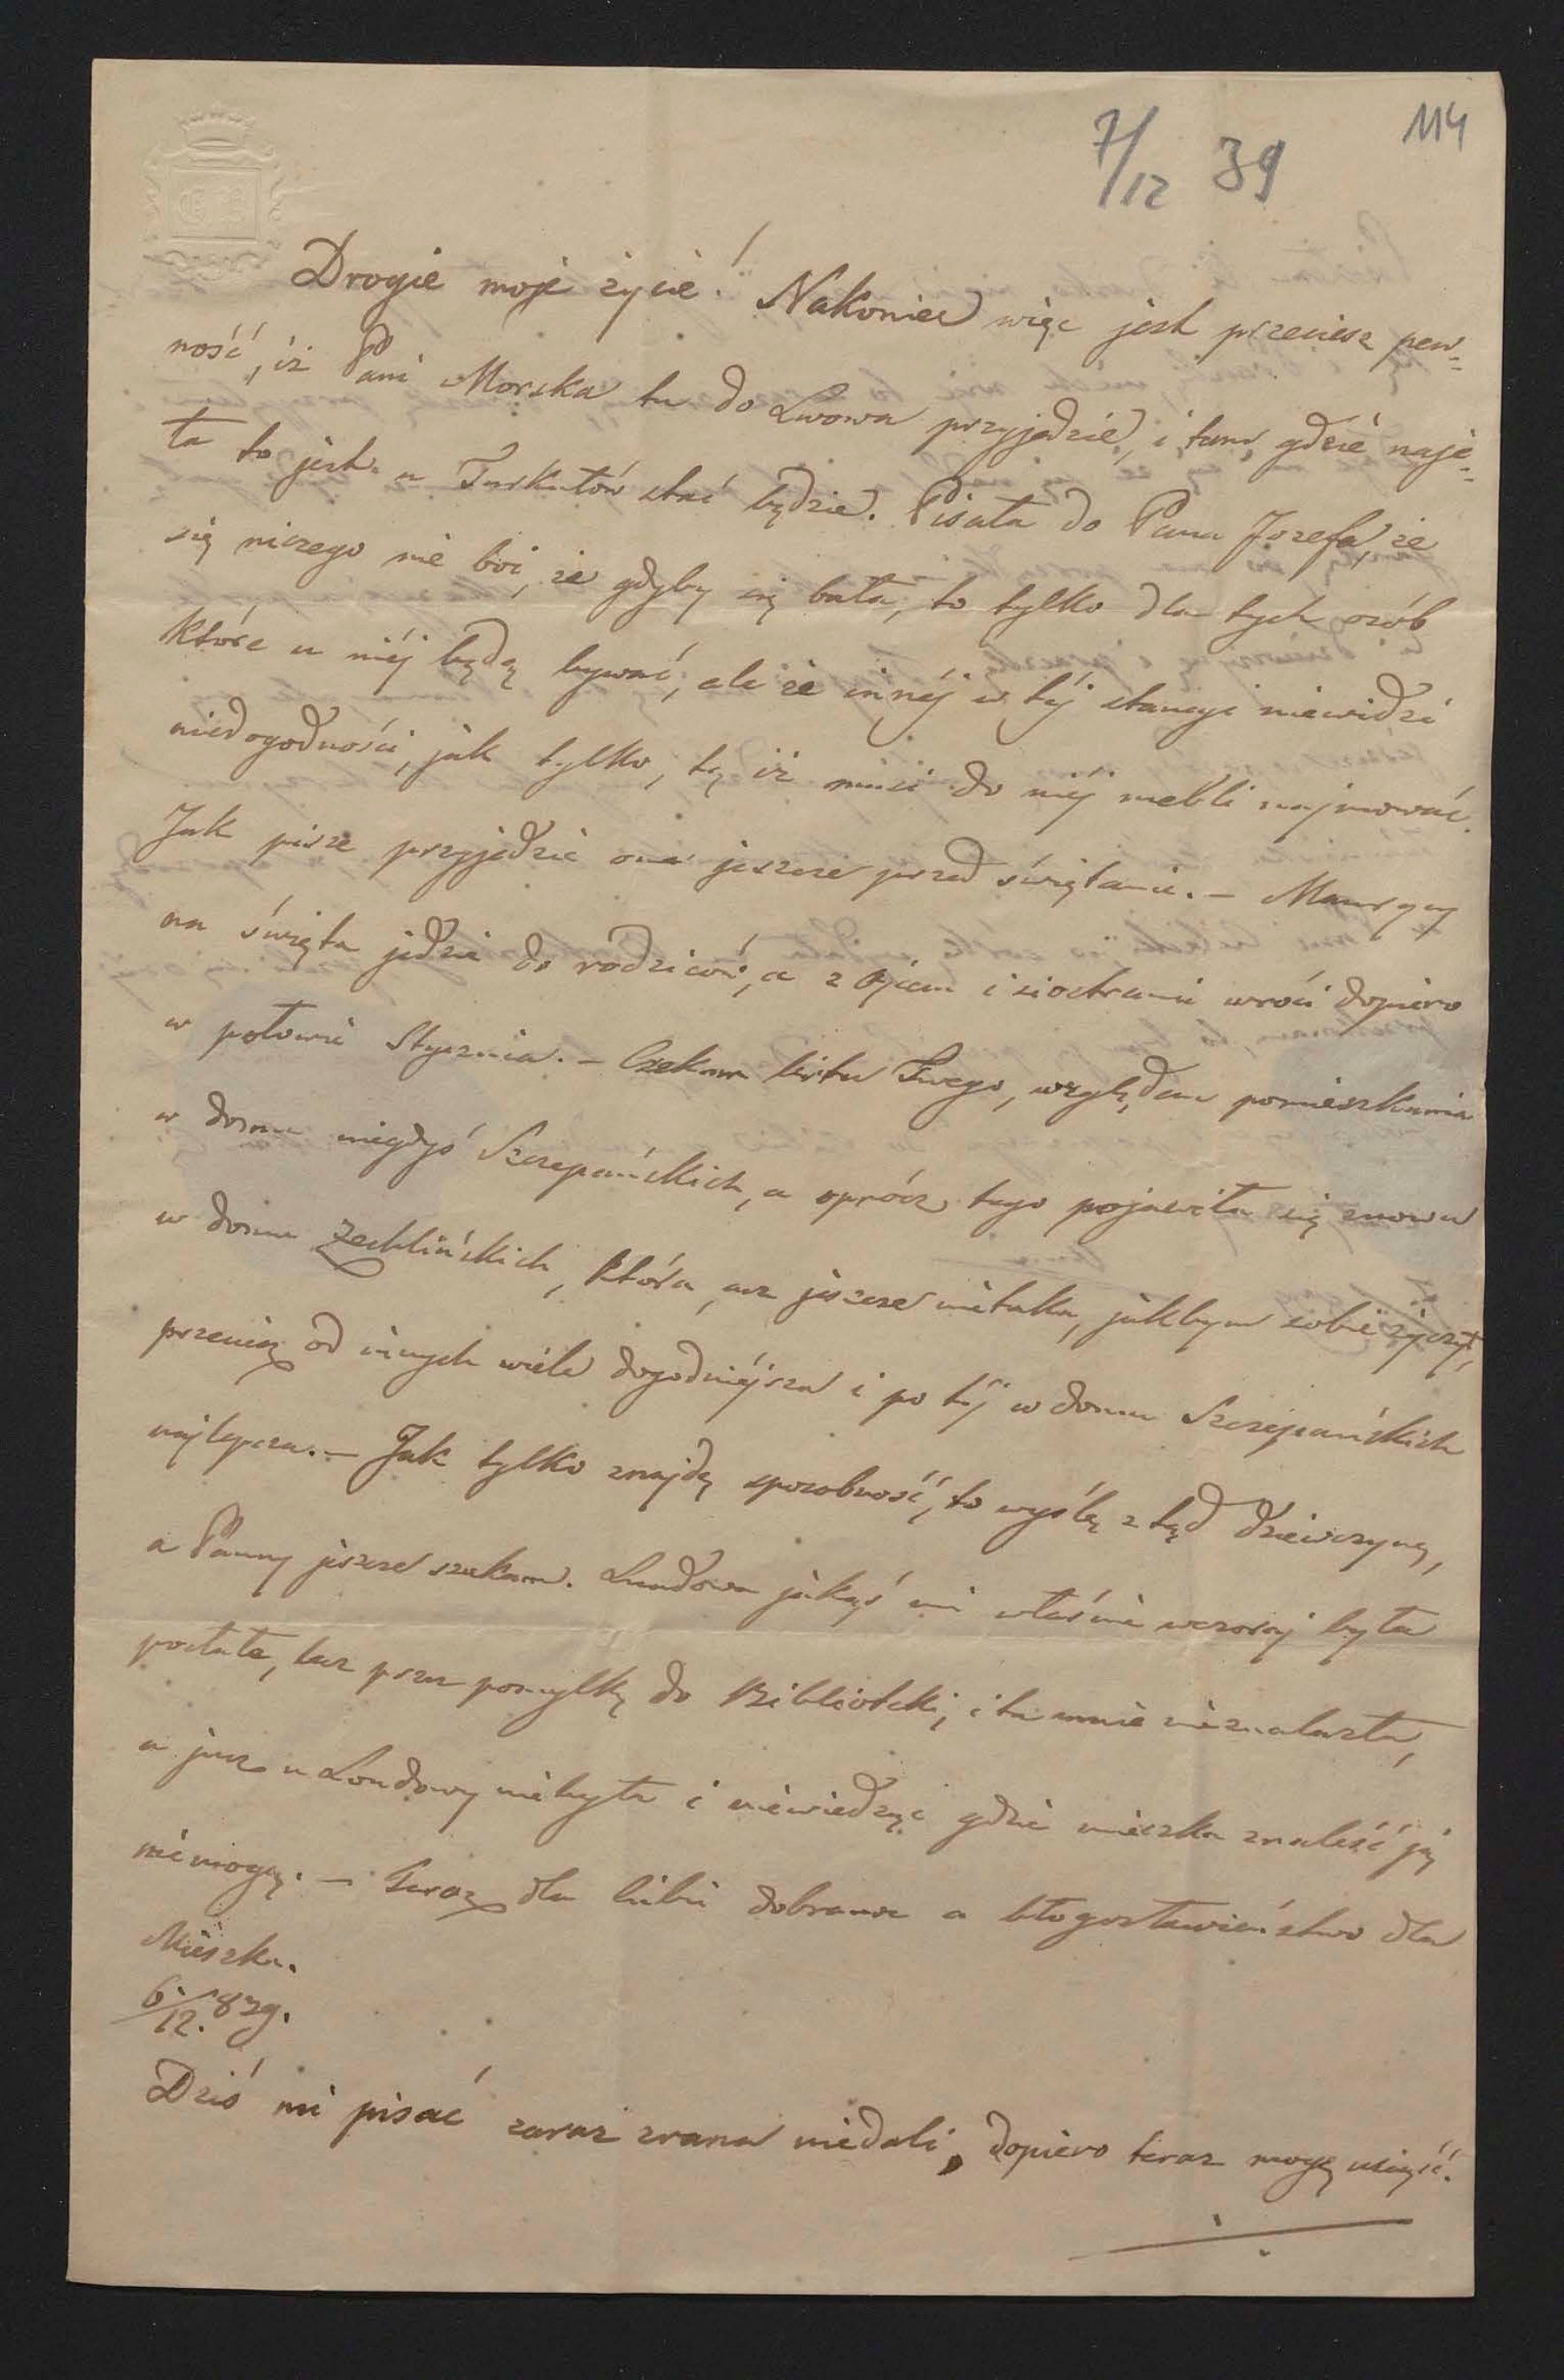 114
7/12 39
Drogie moje życie! Nakoniec więc jest przeciesz pew-
ność, iż Pani Morska tu do Lwowa przyjedzie, i tam, gdzie naję-
ta to jest u Turkułłów stać będzie. Pisała do Pana Jozefa, że
się niczego nie boi, że gdyby się bała, to tylko dla tych osób
które u niéj będą bywać, ale że innéj w téj stancyi niewidzi
niedogodności, jak tylko, tę iż musi do niéj mebli najmować.
Jak pisze przyjedzie ona jeszcze przed świętami. – Maurycy
na święta jedzie do rodziców, a z Ojcem i siostrami wróci dopiero
w połowie Stycznia. – Czekam listu Twego, względem pomieszkania
w domu niegdyś Szczepańskich, a oprócz tego pojawiła się znowu
w domu Zechlińskich, która, acz jeszcze nietaka, jakbym sobie życzył,
przecięż od innych wiele dogodniéjsza i po téj w domu Szczepańskich
najlepsza. – Jak tylko znajdę sposobność, to wyślę z tąd dziewczynę,
a Panny jeszcze szukam. Laudowa jakąś mi właśnie wczoraj była
posłała, lecz przez pomyłkę do Biblioteki, i ta mnie nieznalazła,
a już u Laudowy niebyła i niewiedząc gdzie mieszka znaleść ją
niemogę. – Teraz dla Ciebie dobranoc a błogosławieństwo dla
Mieszka.
6/12. 839.
Dziś mi pisać zaraz zrana niedali, dopiero teraz mogę usiąść.